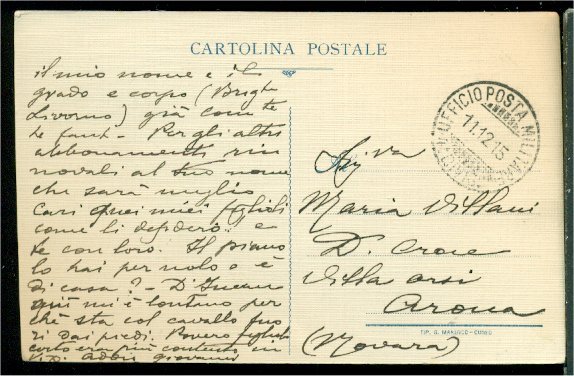 CARTOLINA POSTALE
il mio nome e il
grado e corpo (Brigta
Livorno) già com te
te fanti - Per gli altri
abbonamenti rin
novali al tuo nome
che sarà meglio
Cari quei miei figlioli
come li desidero e
te con loro. Il piano
lo hai per nolo e è
di casa? -
più mi è lontano per
chè sta col cavallo fuo
ri dai piedi. Povero figliolo
certo era più contento in
giovanni
UFFICIO POSTA MILITARE
11.12.15
Sig.va
Maria Villani
D. Croce
Villa Orsi
Arona
(Novara)
TIP. G. MARENCO - CUNEO